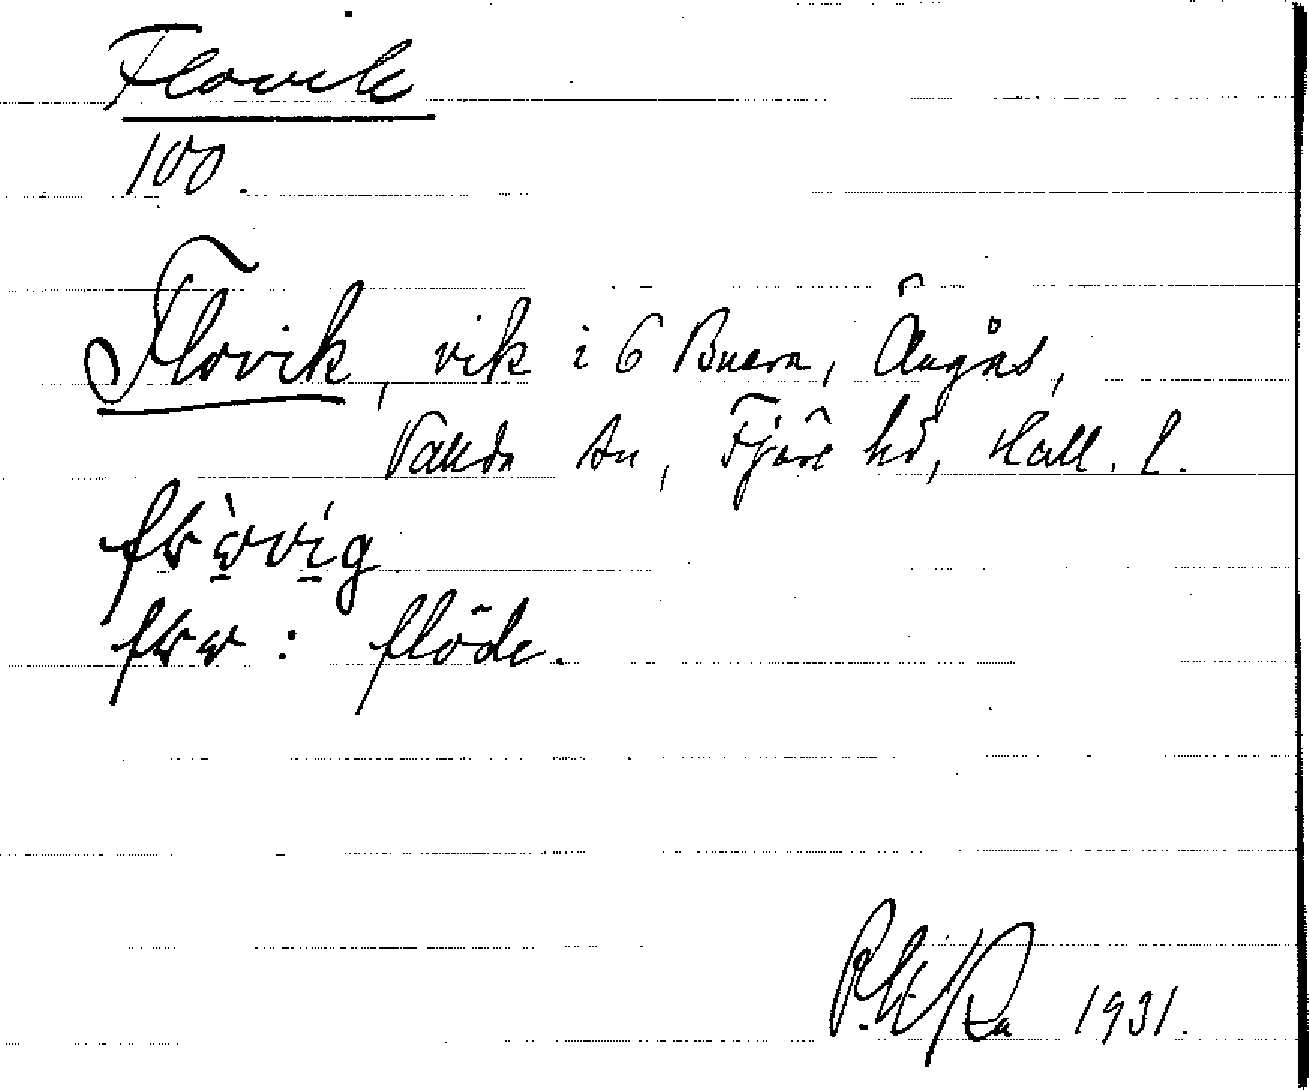 Flovik
100.
Flovik, vik i 6 Buera, Ängås,
Vallda sn, Fjäre hd, Hall. l.
flo: flöde.
1931.